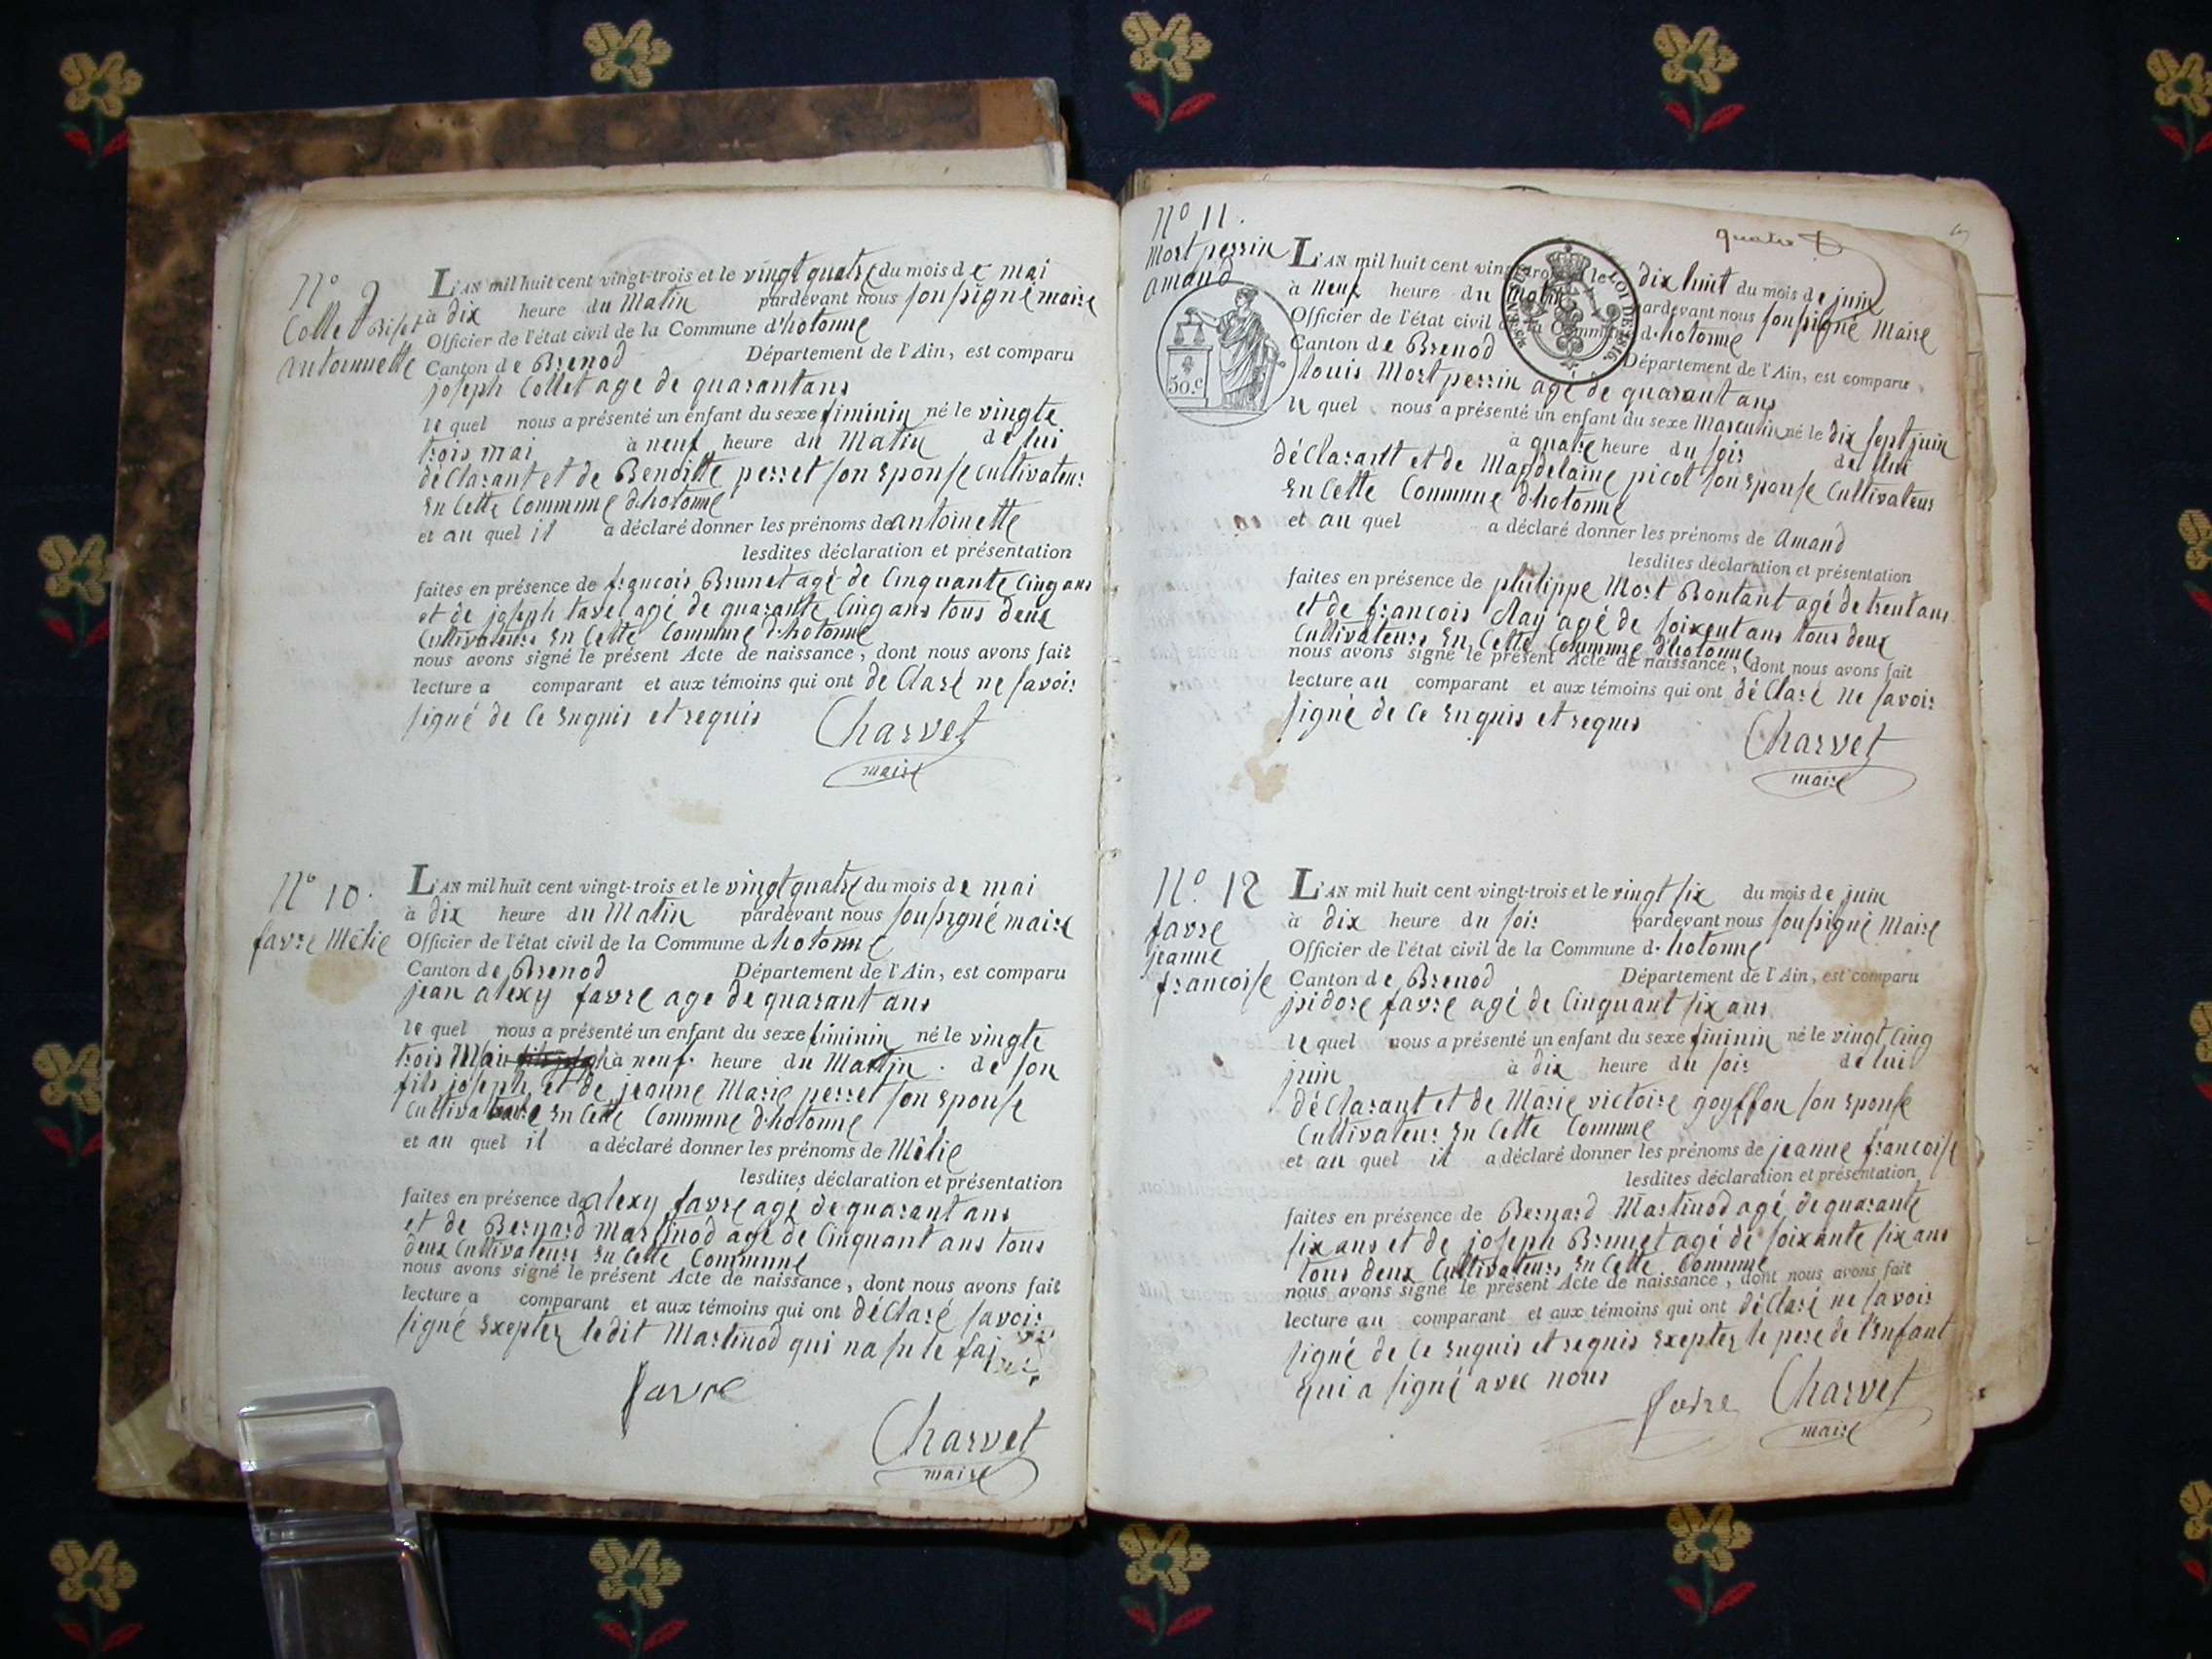 N° 9
Collet Biset
antoinnette
L'AN mil huit cent vingt-trois et le vingt quatre du mois de mai
à dix heure du Matin pardevant nous soussigné maire
Officier de l'état civil de la Commune d'hotonne
Canton de Brenod Département de l'Ain, est comparu
joseph Collet age de quarantans
le quel nous a présenté un enfant du sexe fiminin né le vingte
trois mai à neuf heure du Matin de lui
déclarant et de Benoitte perret son epouse cultivateur
en cette Commune d'hotonne
et au quel il a déclaré donner les prénoms de antoinette
lesdites déclaration et présentation
faites en présence de francois Brunet agé de Cinquante Cinq ans
et de joseph tavel agé de quarante Cinq ans tous deux
Cultivateurs en Cette Commune d'hotonne
nous avons signé le présent Acte de naissance, dont nous avons fait
lecture a comparant et aux témoins qui ont déClaré ne savoir
signé de Ce enquis et requis
Charvet
maire
N° 10.
favre Mélie
L'AN mil huit cent vingt-trois et le vingt quatre du mois de mai
à dix heure du Matin pardevant nous soussigné maire
Officier de l'état civil de la Commune d'hotonne
Canton de Brenod Département de l'Ain, est comparu
jean alexy favre age de quarant ans
le quel nous a présenté un enfant du sexe fiminin né le vingte
trois Mai à neuf. heure du Matin. de son
fils joseph et de jeanne Marie perret son epouse
Cultivateur en Cette Commune d'hotonne
et au quel il a déclaré donner les prénoms de Mélie
lesdites déclaration et présentation
faites en présence de alexy favre agé de quarant ans
et de Bernard Martinod agé de Cinquant ans tous
deux Cultivateurs en Cette Commune
nous avons signé le présent Acte de naissance, dont nous avons fait
lecture a comparant et aux témoins qui ont déClaré savoir
signé exepter ledit Martinod qui na su le fai
favre
Charvet
maire
quatre
N° 11.
Mort perrin
amand
50.c
LOI DE 1816.
L'AN mil huit cent vingt-trois et le dix huit du mois de juin
à neuf heure du Matin pardevant nous soussigné Maire
Officier de l'état civil de la Commune d'hotonne
Canton de Brenod Département de l'Ain, est comparu
louis Mort perrin agé de quarant ans
le quel nous a présenté un enfant du sexe Masculin né le dix sept juin
à quatre heure du soir de lui
déClarantt et de Magdelaine picot son epouse Cultivateur
en Cette Commune d'hotonne
et au quel a déclaré donner les prénoms de amand
lesdites déclaration et présentation
faites en présence de philippe Mort Bontant agé de trent ans
et de francois Clay agé de soixent ans tous deux
Cultivateurs en Cette Commune d'hotonne
nous avons signé le présent Acte de naissance, dont nous avons fait
lecture au comparant et aux témoins qui ont déClaré ne savoir
signé de Ce enquis et requis
Charvet
maire
N° 12
favre
jeanne
francoise
L'AN mil huit cent vingt-trois et le vingt six du mois de juin
à dix heure du soir pardevant nous soussigné Maire
Officier de l'état civil de la Commune d'hotonne
Canton de Brenod Département de l'Ain, est comparu
jsidore favre agé de Cinquant six ans
le quel nous a présenté un enfant du sexe fiminin né le vingt Cinq
juin à dix heure du soir de lui
déClarant et de Marie victoire goyffon son epouse
Cultivateur en Cette Commune
et au quel il a déclaré donner les prénoms de jeanne francoise
lesdites déclaration et présentation
faites en présence de Bernard Martinod agé de quarante
six ans et de joseph Brunet agé de soixante six ans
tous deux Cultivateurs en Cette Commune
nous avons signé le présent Acte de naissance, dont nous avons fait
lecture au comparant et aux témoins qui ont déClaré ne savoir
signé de Ce enquis et requis exepter le pere de l'enfant
qui a signé avec nous
favre
Charvet
maire